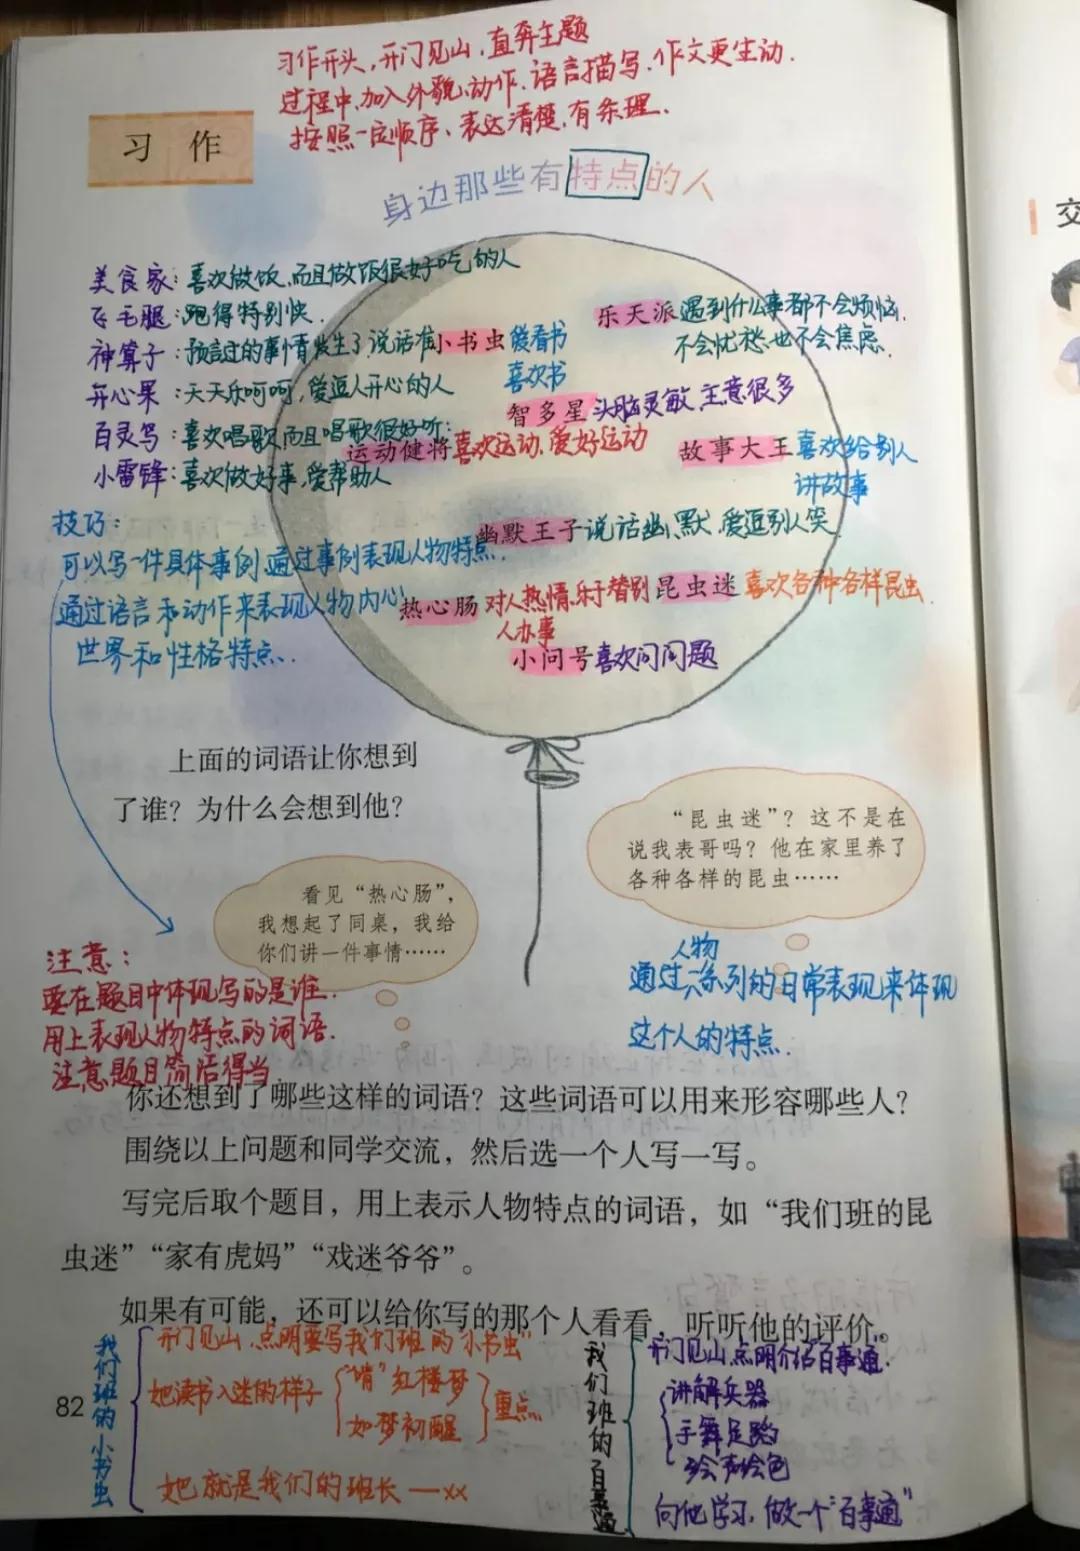 习作开头,开门见山,直奔主题
过程中,加入外貌、动作、语言描写,作文更生动.
按照一定顺序、表达清楚,有条理.
习 作
身边那些有特点的人
美食家:喜欢做饭,而且做饭很好吃的人
飞毛腿:跑得特别快.
神算子:预言过的事情发生了,说话准
开心果:天天乐呵呵,爱逗人开心的人
百灵鸟:喜欢唱歌,而且唱歌很好听.
小雷锋:喜欢做好事,爱帮助人
乐天派 遇到什么事都不会烦恼.
不会忧愁也不会焦虑.
小书虫 爱看书
喜欢书
智多星 头脑灵敏,主意很多
运动健将 喜欢运动,爱好运动
故事大王 喜欢给别人
讲故事
幽默王子 说话幽默,爱逗别人笑
热心肠 对人热情,乐于替别
人办事
昆虫迷 喜欢各种各样昆虫
小问号 喜欢问问题
技巧:
可以写一件具体事例,通过事例表现人物特点.
通过语言和动作来表现人物内心
世界和性格特点.
上面的词语让你想到
了谁?为什么会想到他?
“昆虫迷”?这不是在
说我表哥吗?他在家里养了
各种各样的昆虫……
看见“热心肠”,
我想起了同桌,我给
你们讲一件事情……
注意:
要在题目中体现写的是谁.
用上表现人物特点的词语.
注意题目简洁得当
人物
通过一系列的日常表现来体现
这个人的特点.
你还想到了哪些这样的词语?这些词语可以用来形容哪些人?
围绕以上问题和同学交流,然后选一个人写一写。
写完后取个题目,用上表示人物特点的词语,如“我们班的昆
虫迷”“家有虎妈”“戏迷爷爷”。
如果有可能,还可以给你写的那个人看看,听听他的评价。
我们班的小书虫
开门见山,点明要写我们班的“小书虫”
她读书入迷的样子
“啃”红楼梦
如梦初醒
重点
她就是我们的班长——xx
我们班的百事通
开门见山,点明介绍百事通.
讲解兵器
手舞足蹈
绘声绘色
向他学习,做一个“百事通”
82
交